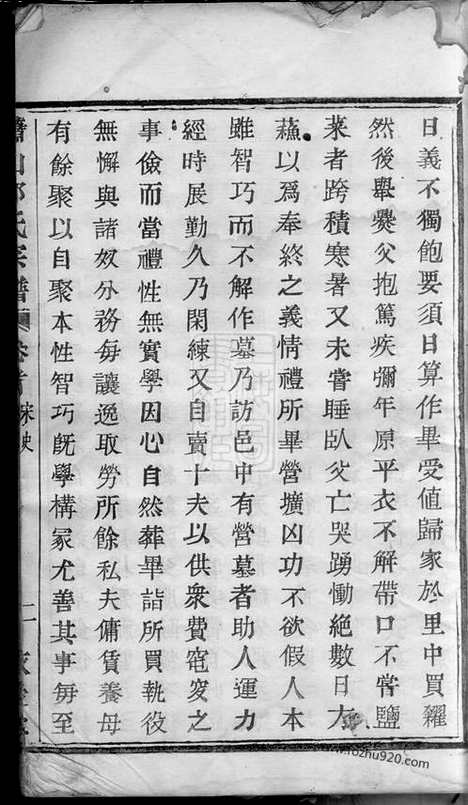 日義不獨飽要須日算作畢受値歸家於里中買糴
然後舉爨父抱篤疾彌年原平衣不解帶口不嘗鹽
菜者跨積寒暑又未嘗睡臥父亡哭踴慟絕數日方
蘓以爲奉終之義情禮所畢營壙凶功不欲假人本
雖智巧而不解作墓乃訪邑中有營墓者助人運力
經時展勤久乃閑練又自賣十夫以供衆費窀穸之
事儉而當禮性無實學因心自然葬畢詣所買執役
無懈與諸奴分務每讓逸取勞所餘私夫傭賃養母
有餘聚以自聚本性智巧旣學構冢尤善其事每至
氏宗譜 二
www.fozhu920.com